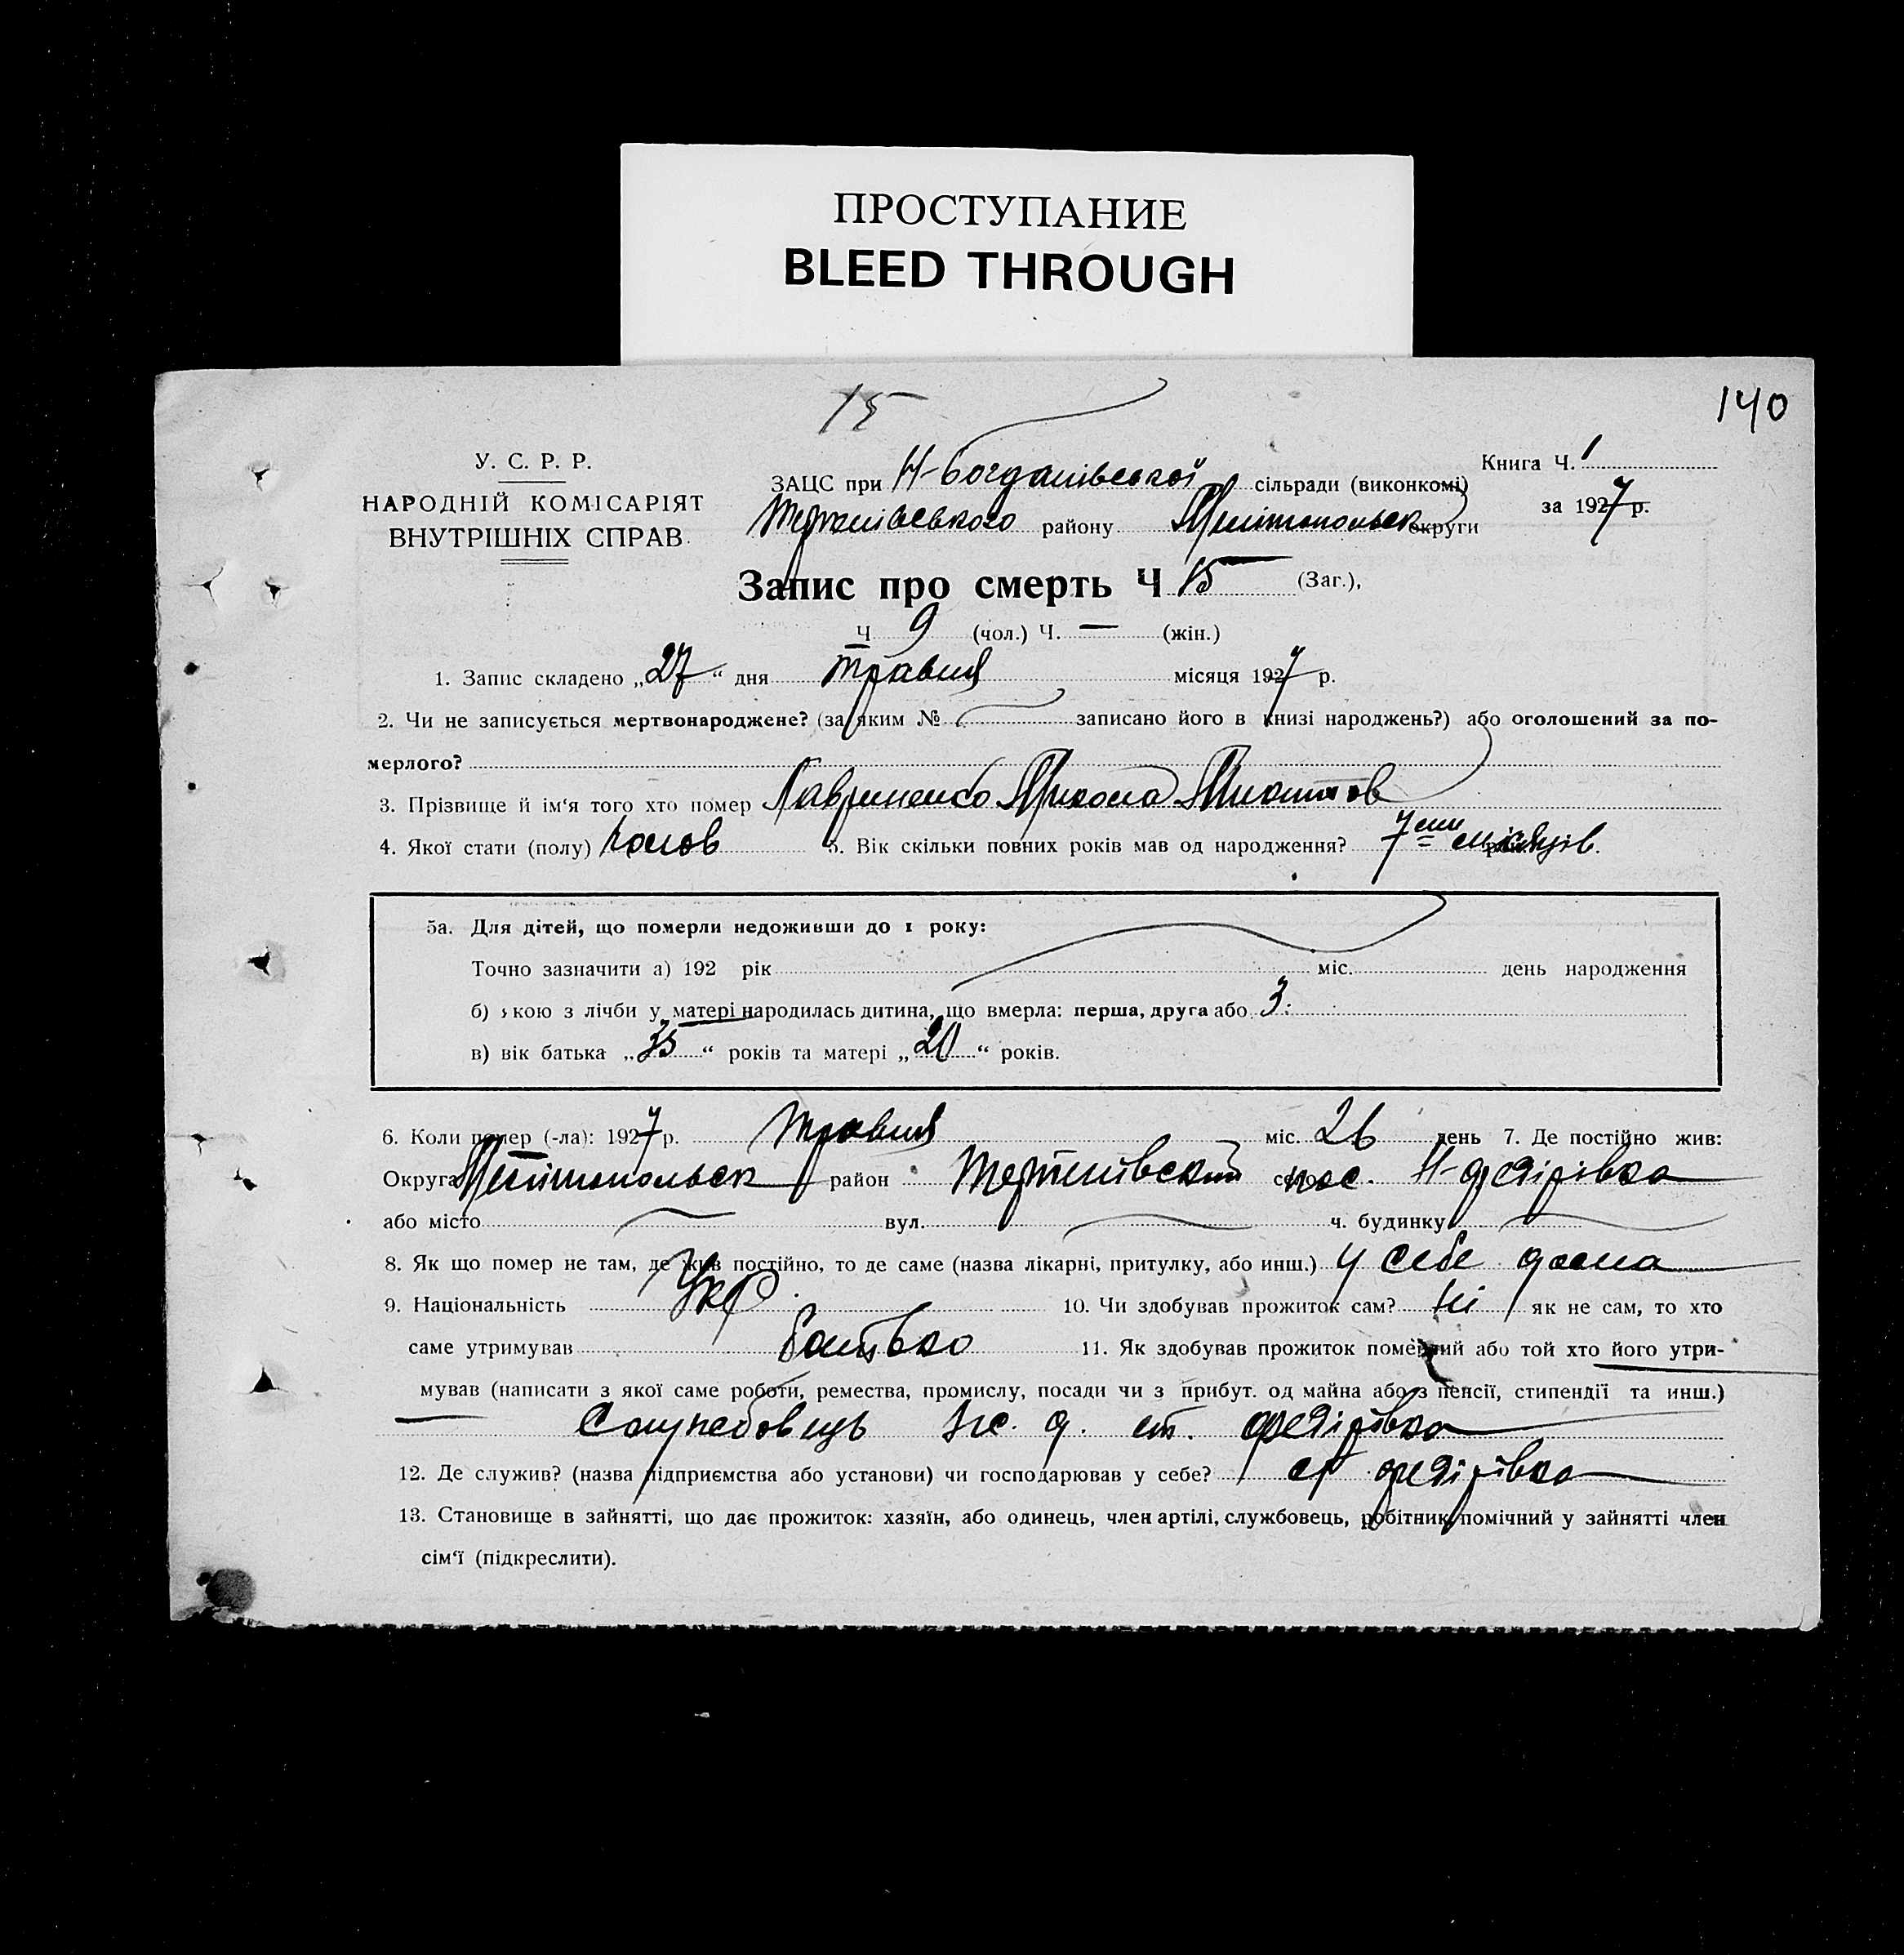 ПРОСТУПАНИЕ
BLEED THROUGH
15
140
У. С. Р. Р.
НАРОДНІЙ КОМІСАРІЯТ
ВНУТРІШНІХ СПРАВ
ЗАЦС при Н-Богданівської сільради (виконкомі)
району Мелітопольск округи
Книга Ч. 1
за 1927 р.
Запис про смерть Ч 15 (Заг.),
Ч 9 (чол.) Ч. — (жін.)
1. Запис складено „27“ дня травня місяця 1927 р.
2. Чи не записується мертвонароджене? (за яким № записано його в книзі народжень?) або оголошений за по-
мерлого?
3. Прізвище й ім‘я того хто помер Лавриненко Микола
4. Якої стати (полу) чолов 5. Вік скільки повних років мав од народження? 7 ми місяців.
5а. Для дітей, що померли недоживши до 1 року:
Точно зазначити а) 192 рік міс. день народження
б) якою з лічби у матері народилась дитина, що вмерла: перша, друга або 3.
в) вік батька „35“ років та матері „20“ років.
6. Коли помер (-ла): 1927 р. травня міс. 26 день 7. Де постійно жив:
Округа Мелітопольск район село пос. Н-Федірівка
або місто вул. ч. будинку
8. Як що помер не там, де жив постійно, то де саме (назва лікарні, притулку, або инш.) у себе дома
9. Національність Укр. 10. Чи здобував прожиток сам? ні як не сам, то хто
саме утримував батько 11. Як здобував прожиток померший або той хто його утри-
мував (написати з якої саме роботи, ремества, промислу, посади чи з прибут. од майна або з пенсії, стипендії та инш.)
— Служебовець зс. д. ст. Федірівка
12. Де служив? (назва підприємства або установи) чи господарював у себе? ст Федірівка
13. Становище в зайнятті, що дає прожиток: хазяїн, або одинець, член артілі, службовець, робітник, помічний у зайнятті член
сім‘ї (підкреслити).